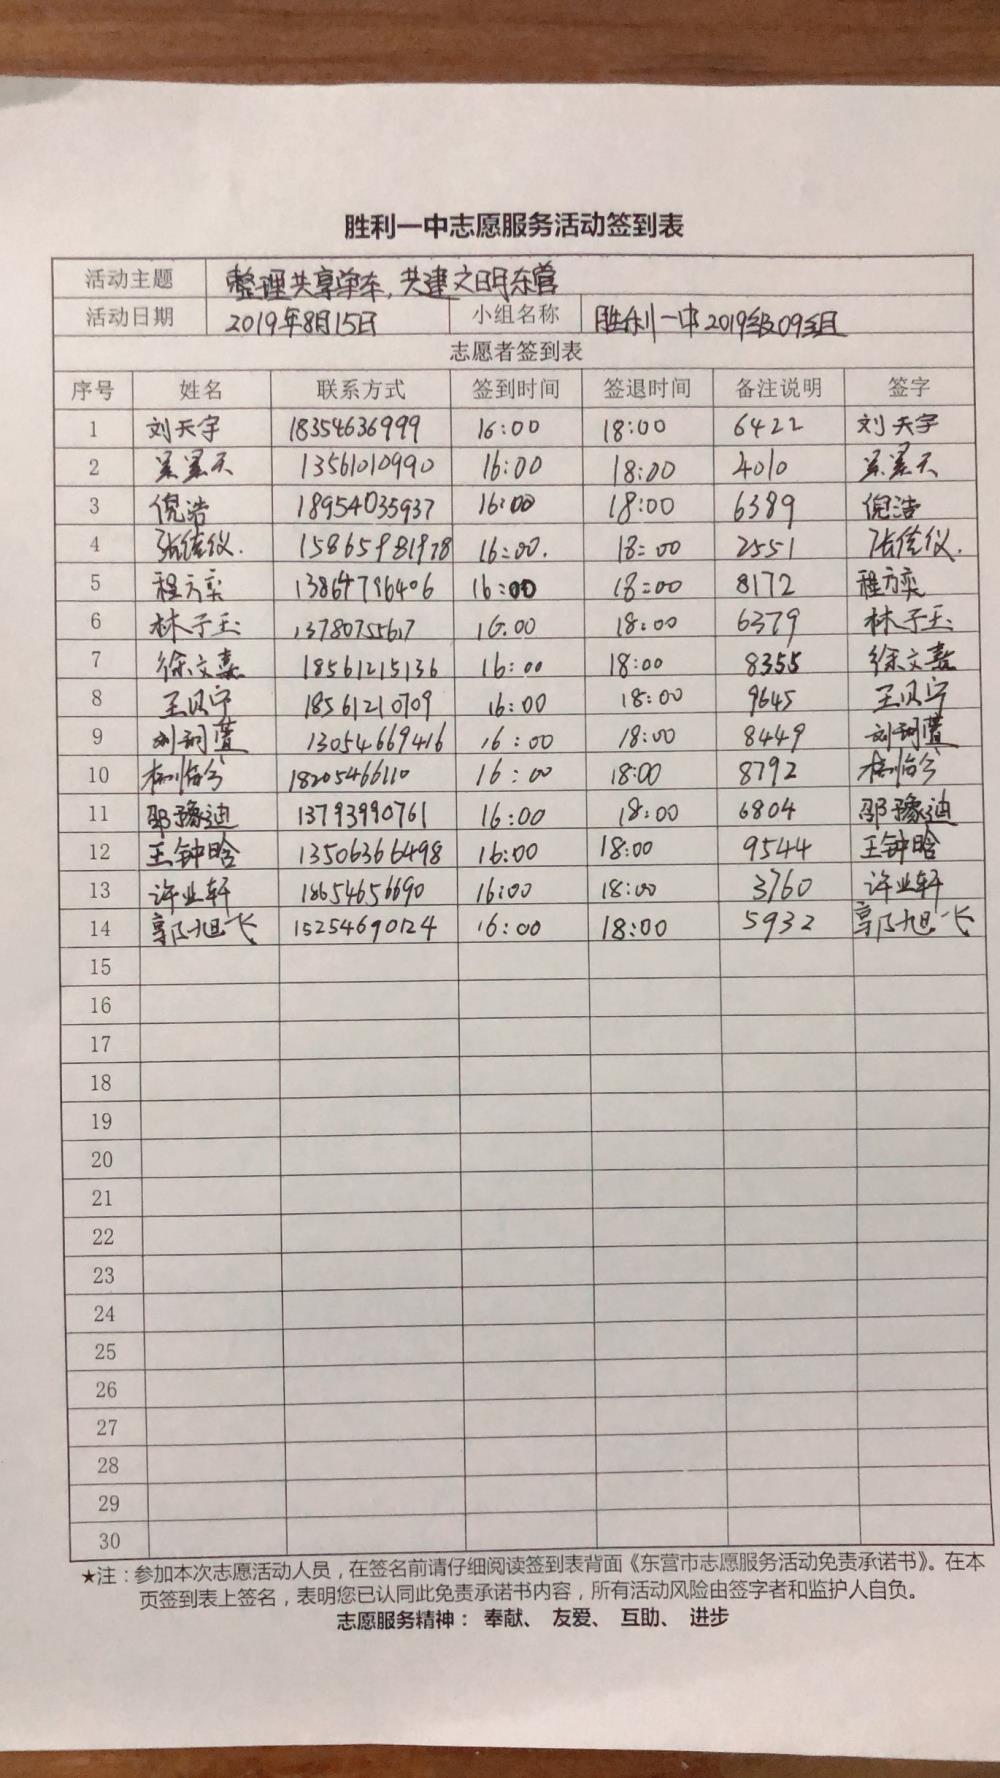 胜利一中志愿服务活动签到表
活动主题 整理共享单车,共建文明东营
活动日期 2019年8月15日 小组名称 胜利一中2019级09组
志愿者签到表
序号 姓名 联系方式 签到时间 签退时间 备注说明 签字
1 刘天宇 18354636999 16:00 18:00 6422 刘天宇
2 13561010990 16:00 18:00 4010
3 倪浩 18954035937 16:00 18:00 6389 倪浩
4 张倍仪. 15865981978 16:00. 18:00 2551 张倍仪.
5 程方奕 13864796406 16:00 18:00 8172 程方奕
6 林子玉 16:00 18:00 6379 林子玉
7 徐文嘉 18561215136 16:00 18:00 8355 徐文嘉
8 王贝宁 18561210709 16:00 18:00 9645 王贝宁
9 刘珂萱 13054669416 16:00 18:00 8449 刘珂萱
10 18205466110 16:00 18:00 8792
11 邵豫迪 13793990761 16:00 18:00 6804 邵豫迪
12 王钟晗 13506366498 16:00 18:00 9544 王钟晗
13 许业轩 18654656690 16:00 18:00 3760 许业轩
14 郭旭飞 15254690124 16:00 18:00 5932 郭旭飞
15
16
17
18
19
20
21
22
23
24
25
26
27
28
29
30
★注:参加本次志愿活动人员,在签名前请仔细阅读签到表背面《东营市志愿服务活动免责承诺书》。在本
页签到表上签名,表明您已认同此免责承诺书内容,所有活动风险由签字者和监护人自负。
志愿服务精神: 奉献、 友爱、 互助、 进步